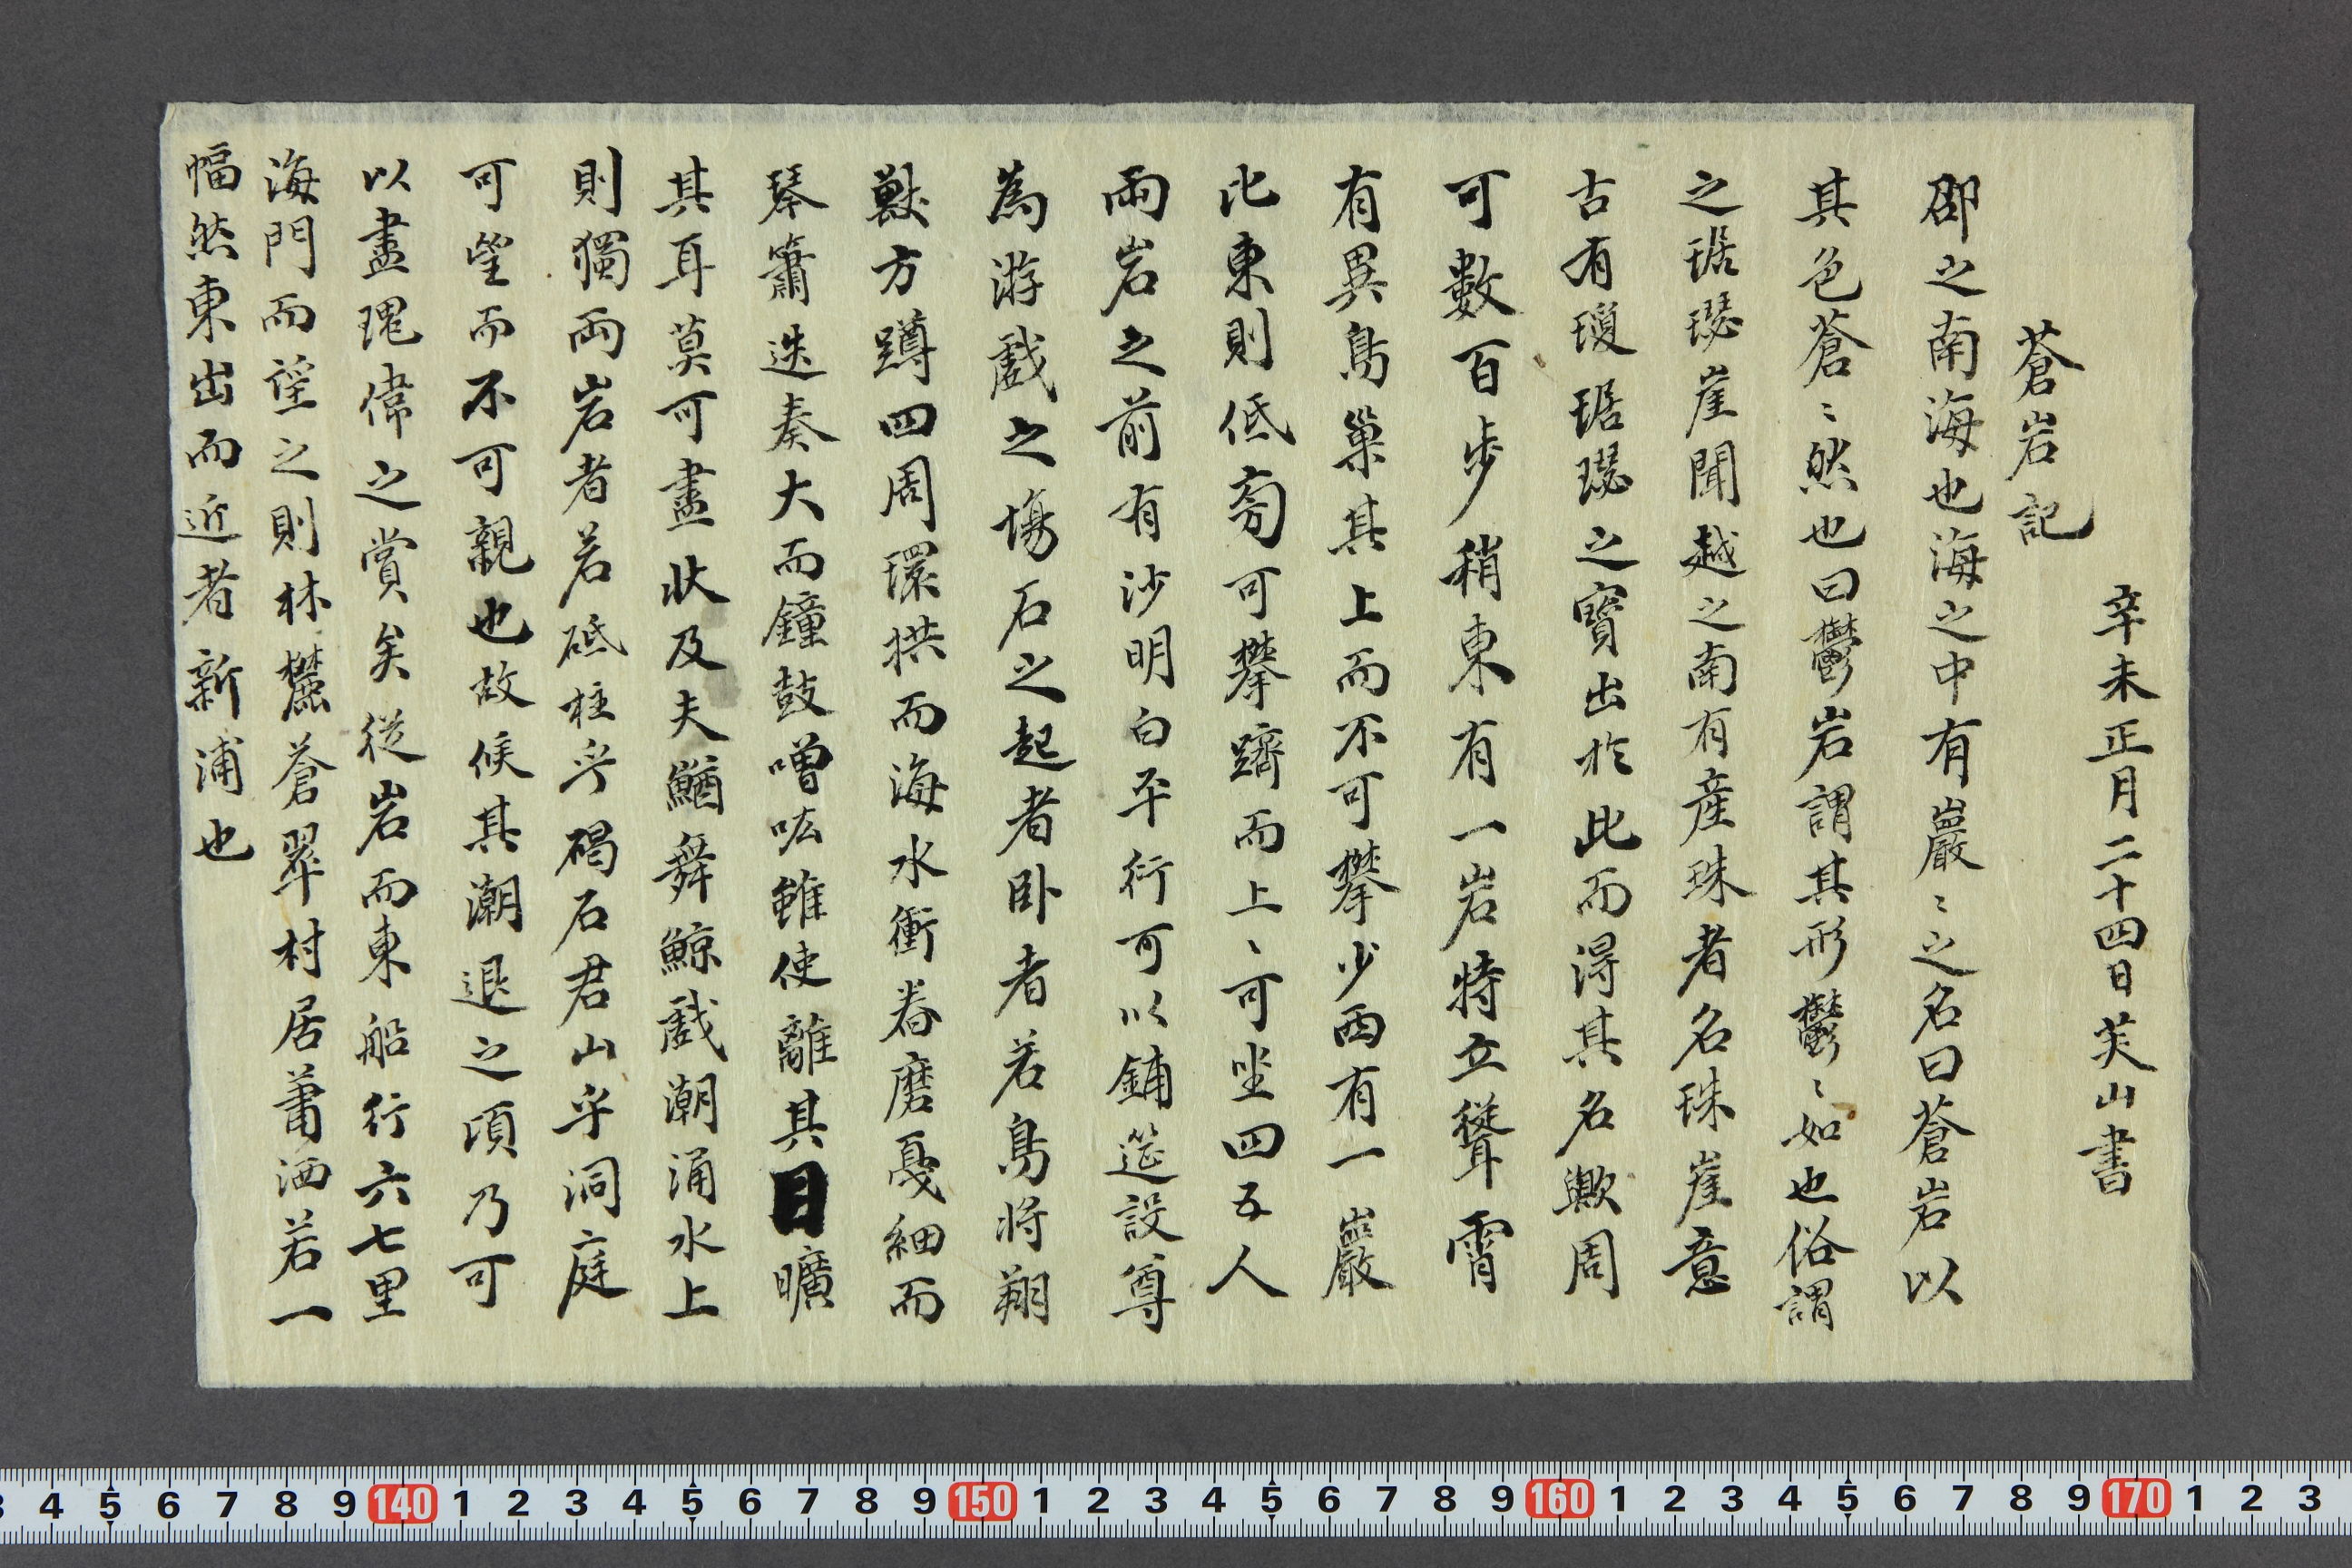 蒼岩記
辛未正月二十四日芙山書
郡之南海也海之中有巖〻之名曰蒼岩以
其色蒼〻然也曰鬱岩謂其形鬱〻如也俗謂
之琚璱崖聞越之南有産珠者名珠崖意
古有瓊琚璱之寶出於此而得其名歟周
可數百步稍東有一岩特立聳霄
有異鳥巢其上而不可攀少西有一巖
比東則低旁可攀躋而上〻可坐四五人
兩岩之前有沙明白平衍可以鋪筵設尊
為游戲之場石之起者臥者若鳥將翔
獸方蹲四周環拱而海水衝舂磨戛細而
琴簫迭奏大而鐘鼓噌吰雖使離其目曠
其耳莫可盡狀及夫鰌舞鯨戲潮涌水上
則獨兩岩者若砥柱乎碣石君山乎洞庭
可望而不可親也故候其潮退之頃乃可
以盡瑰偉之賞矣從岩而東船行六七里
海門而望之則林麓蒼翠村居蕭洒若一
幅然東出而近者新浦也